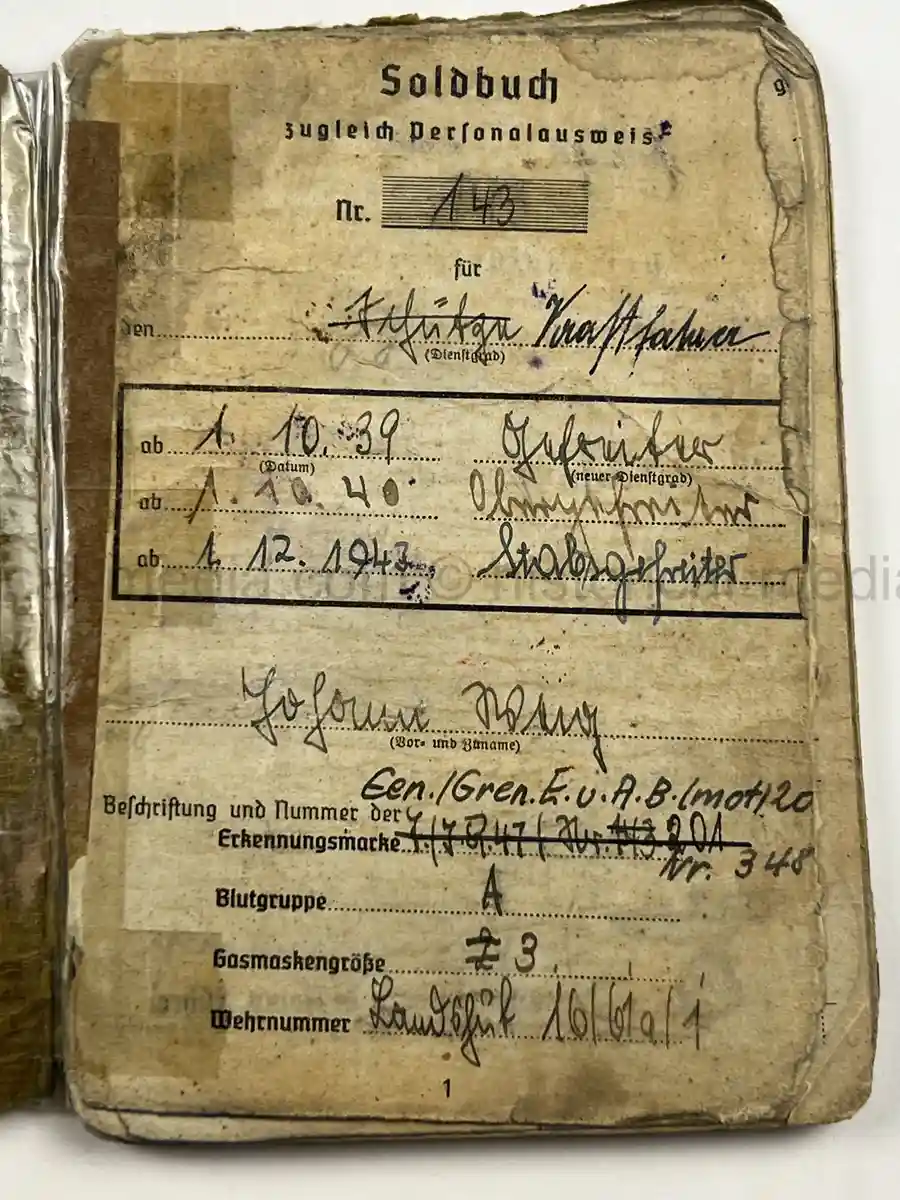 Soldbuch
zugleich Personalausweis
Nr. 143
für
den Schütze Kraftfahrer
(Dienstgrad)
ab 1. 10. 39 Gefreiter
(Datum) (neuer Dienstgrad)
ab 1. 10. 40 Obergefreiter
ab 1. 12. 1943 Stabsgefreiter
Johann
(Vor- und Zuname)
Gen./Gren.E.u.A.B.(mot)20
Beschriftung und Nummer der
Erkennungsmarke
Nr. 348
Blutgruppe A
Gasmaskengröße 2 3
Wehrnummer Landshut 16/61a/1
1